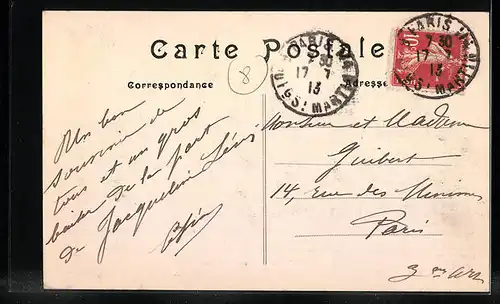 Carte Postale
Correspondance
Adresse
8
PARIS
7 30
17 7
13
PARIS
7 30
17 7
13
10
Un bon
souvenir de
tous et un gros
baiser de la part
de Jacqueline
Monsieur et Madame
Guibert
14, rue des Minimes
Paris
3